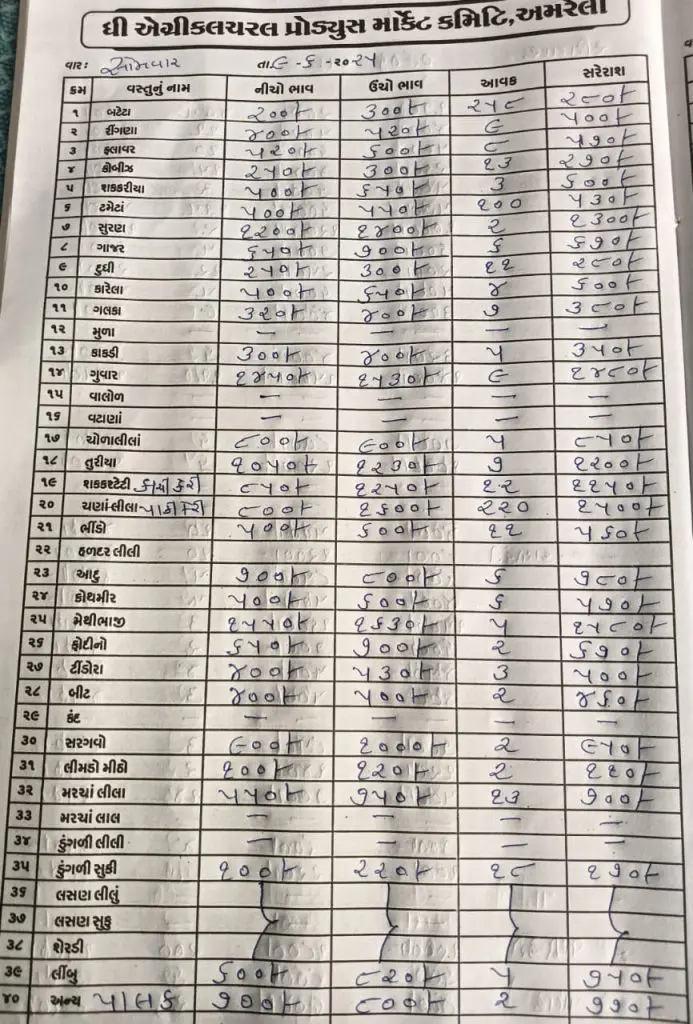 ધી એગ્રીકલચરલ પ્રોડ્યુસ માર્કેટ કમિટિ,અમરેલી
વારઃ સોમવાર તા.૯-૬-૨૦૨૫
ક્રમ વસ્તુનું નામ નીચો ભાવ ઉંચો ભાવ આવક સરેરાશ
૧ બટેટા ૨૦૦/- ૩૦૦/- ૨૫૮ ૨૮૦/-
૨ રીંગણા ૪૦૦/- ૫૨૦/- ૯ ૫૦૦/-
૩ ફલાવર ૫૨૦/- ૬૦૦/- ૮ ૫૭૦/-
૪ કોબીજ ૨૫૦/- ૩૦૦/- ૧૩ ૨૭૦/-
૫ શકકરીયા ૫૦૦/- ૬૫૦/- ૩ ૬૦૦/-
૬ ટમેટાં ૫૦૦/- ૫૫૦/- ૧૦૦ ૫૩૦/-
૭ સુરણ ૧૨૦૦/- ૧૪૦૦/- ૨ ૧૩૦૦/-
૮ ગાજર ૬૫૦/- ૭૦૦/- ૬ ૬૭૦/-
૯ દુધી ૨૫૦/- ૩૦૦/- ૧૧ ૨૮૦/-
૧૦ કારેલા ૫૦૦/- ૬૫૦/- ૪ ૬૦૦/-
૧૧ ગલકા ૩૨૦/- ૪૦૦/- ૭ ૩૮૦/-
૧૨ મુળા — — — —
૧૩ કાકડી ૩૦૦/- ૪૦૦/- ૫ ૩૫૦/-
૧૪ ગુવાર ૧૪૫૦/- ૧૫૩૦/- ૯ ૧૪૮૦/-
૧૫ વાલોળ — — — —
૧૬ વટાણાં — — — —
૧૭ ચોળાલીલાં ૮૦૦/- ૯૦૦/- ૫ ૮૫૦/-
૧૮ તુરીયા ૧૦૫૦/- ૧૨૩૦/- ૭ ૧૨૦૦/-
૧૯ શકકરટેટી કાચી કેરી ૮૫૦/- ૧૨૫૦/- ૧૨ ૧૧૫૦/-
૨૦ ચણાં-લીલા પાકી કેરી ૮૦૦/- ૧૬૦૦/- ૨૨૦ ૧૫૦૦/-
૨૧ ભીંડો ૫૦૦/- ૬૦૦/- ૧૧ ૫૬૦/-
૨૨ હળદર લીલી
૨૩ આદુ ૭૦૦/- ૮૦૦/- ૬ ૭૮૦/-
૨૪ કોથમીર ૫૦૦/- ૬૦૦/- ૬ ૫૭૦/-
૨૫ મેથીભાજી ૧૫૫૦/- ૧૬૩૦/- ૫ ૧૫૮૦/-
૨૬ ફોદીનો ૬૫૦/- ૭૦૦/- ૨ ૬૭૦/-
૨૭ ટીંડોરા ૪૦૦/- ૫૩૦/- ૩ ૫૦૦/-
૨૮ બીટ ૪૦૦/- ૫૦૦/- ૨ ૪૬૦/-
૨૯ કંદ — — — —
૩૦ સરગવો ૯૦૦/- ૧૦૦૦/- ૨ ૯૫૦/-
૩૧ લીમડો મીઠો ૧૦૦/- ૧૨૦/- ૨ ૧૧૦/-
૩૨ મરચાં લીલા ૫૫૦/- ૭૫૦/- ૧૩ ૭૦૦/-
૩૩ મરચાં લાલ — — — —
૩૪ ડુંગળી લીલી — — — —
૩૫ ડુંગળી સુકી ૧૦૦/- ૨૨૦/- ૧૮ ૧૭૦/-
૩૬ લસણ લીલું
૩૭ લસણ સુકુ
૩૮ શેરડી
૩૯ લીંબુ ૬૦૦/- ૮૨૦/- ૫ ૭૫૦/-
૪૦ અન્ય પાલક ૭૦૦/- ૮૦૦/- ૨ ૭૭૦/-